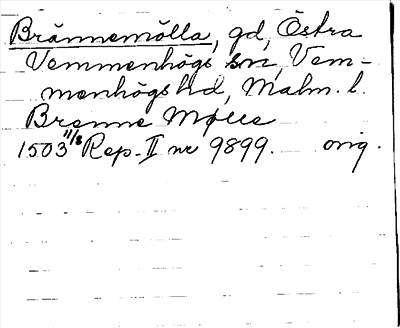 Brännemölla, gd, Östra
Vemmenhögs sn, Vem-
menhögs hd, Malm. l.
Brenne Mølle
1503 11/8 Rep. II nr 9899. orig.